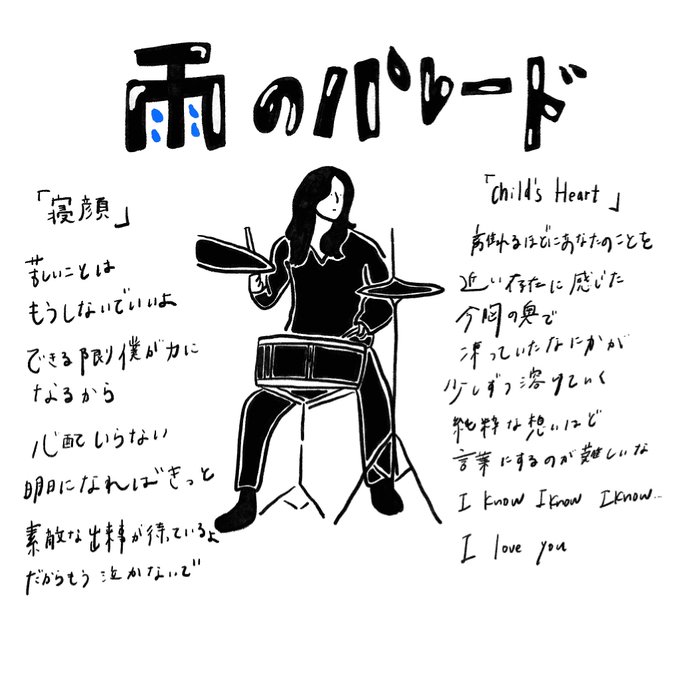 雨のパレード
「寝顔」
苦しいことは
もうしないでいいよ
できる限り僕が力に
なるから
心配いらない
明日になればきっと
素敵な出来事が待っているよ
だからもう泣かないで
「Child's Heart」
離れるほどにあなたのことを
近い存在に感じた
今胸の奥で
凍っていたなにかが
少しずつ溶けていく
純粋な想いほど
言葉にするのが難しいな
I know I know I know...
I love you